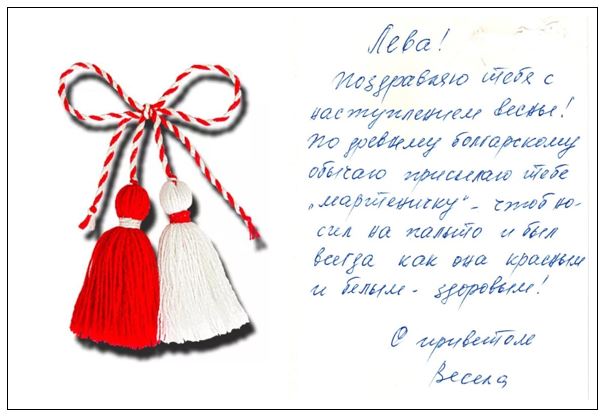 Лева!
Поздравляю тебя с
наступлением весны!
По древнему болгарскому
обычаю присылаю тебе
„мартеничку" - чтоб но-
сил на пальто и был
всегда как она красным
и белым - здоровым!
С приветом
Весела